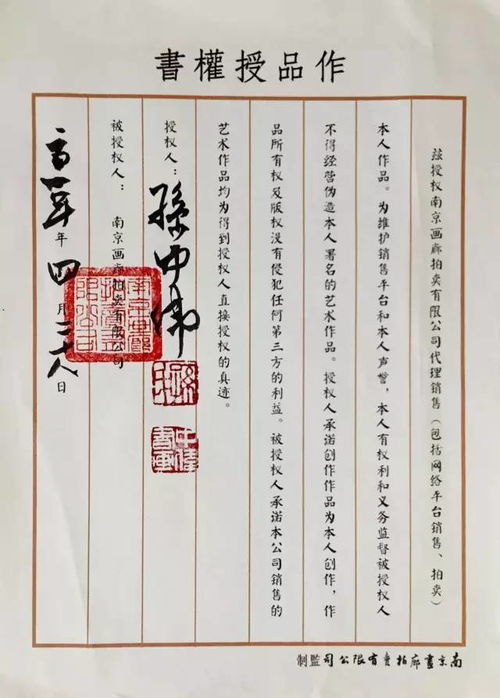 作品授權書
兹授权南京画廊拍卖有限公司代理销售（包括网络平台销售、拍卖）
本人作品。为维护销售平台和本人声誉，本人有权利和义务监督被授权人
不得经营伪造本人署名的艺术作品。授权人承诺创作作品为本人创作，作
品所有权及版权没有侵犯任何第三方的利益。被授权人承诺本公司销售的
艺术作品均为得到授权人直接授权的真迹。
授权人：孫中偉
被授权人：南京画廊拍卖有限公司
年四月二十八日
南京畫廊拍賣有限公司監制